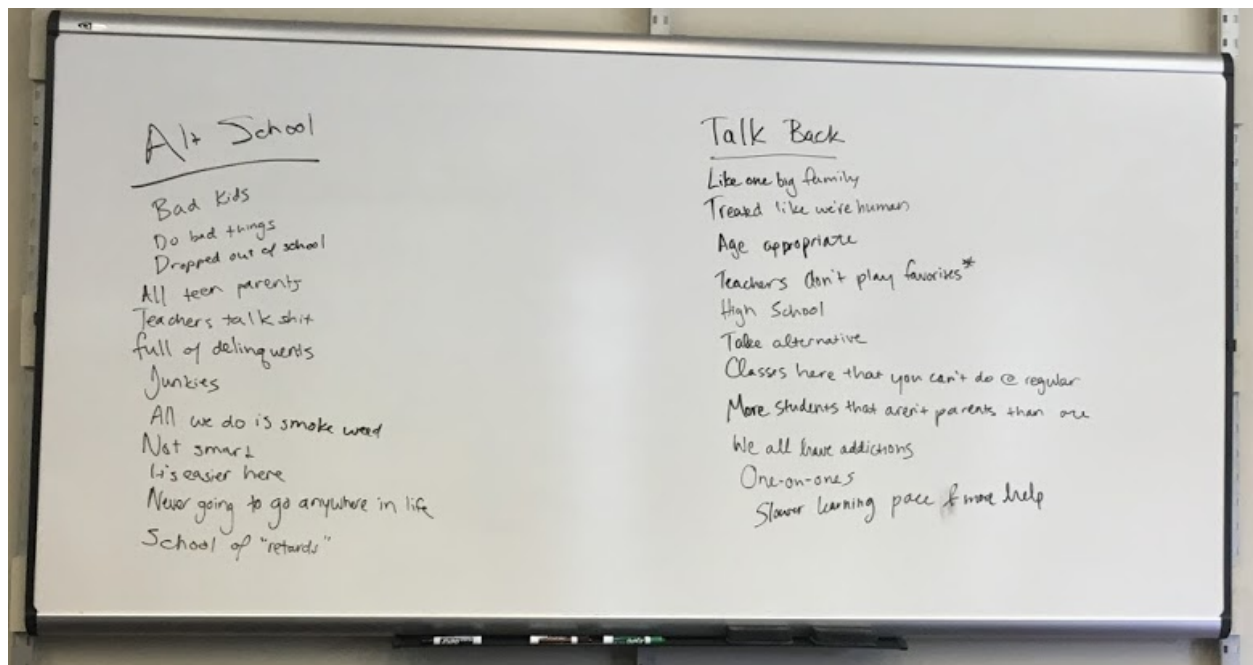 Alt School
Bad Kids
Do bad things
Dropped out of school
All teen parents
Teachers talk shit
full of delinquents
Junkies
All we do is smoke weed
Not smart
It's easier here
Never going to go anywhere in life
School of "retards"
Talk Back
Like one big family
Treated like we're human
Age appropriate
Teachers don't play favorites*
High School
Take alternative
Classes here that you can't do @ regular
More students that aren't parents than are
We all have addictions
One-on-ones
Slower learning pace & more help